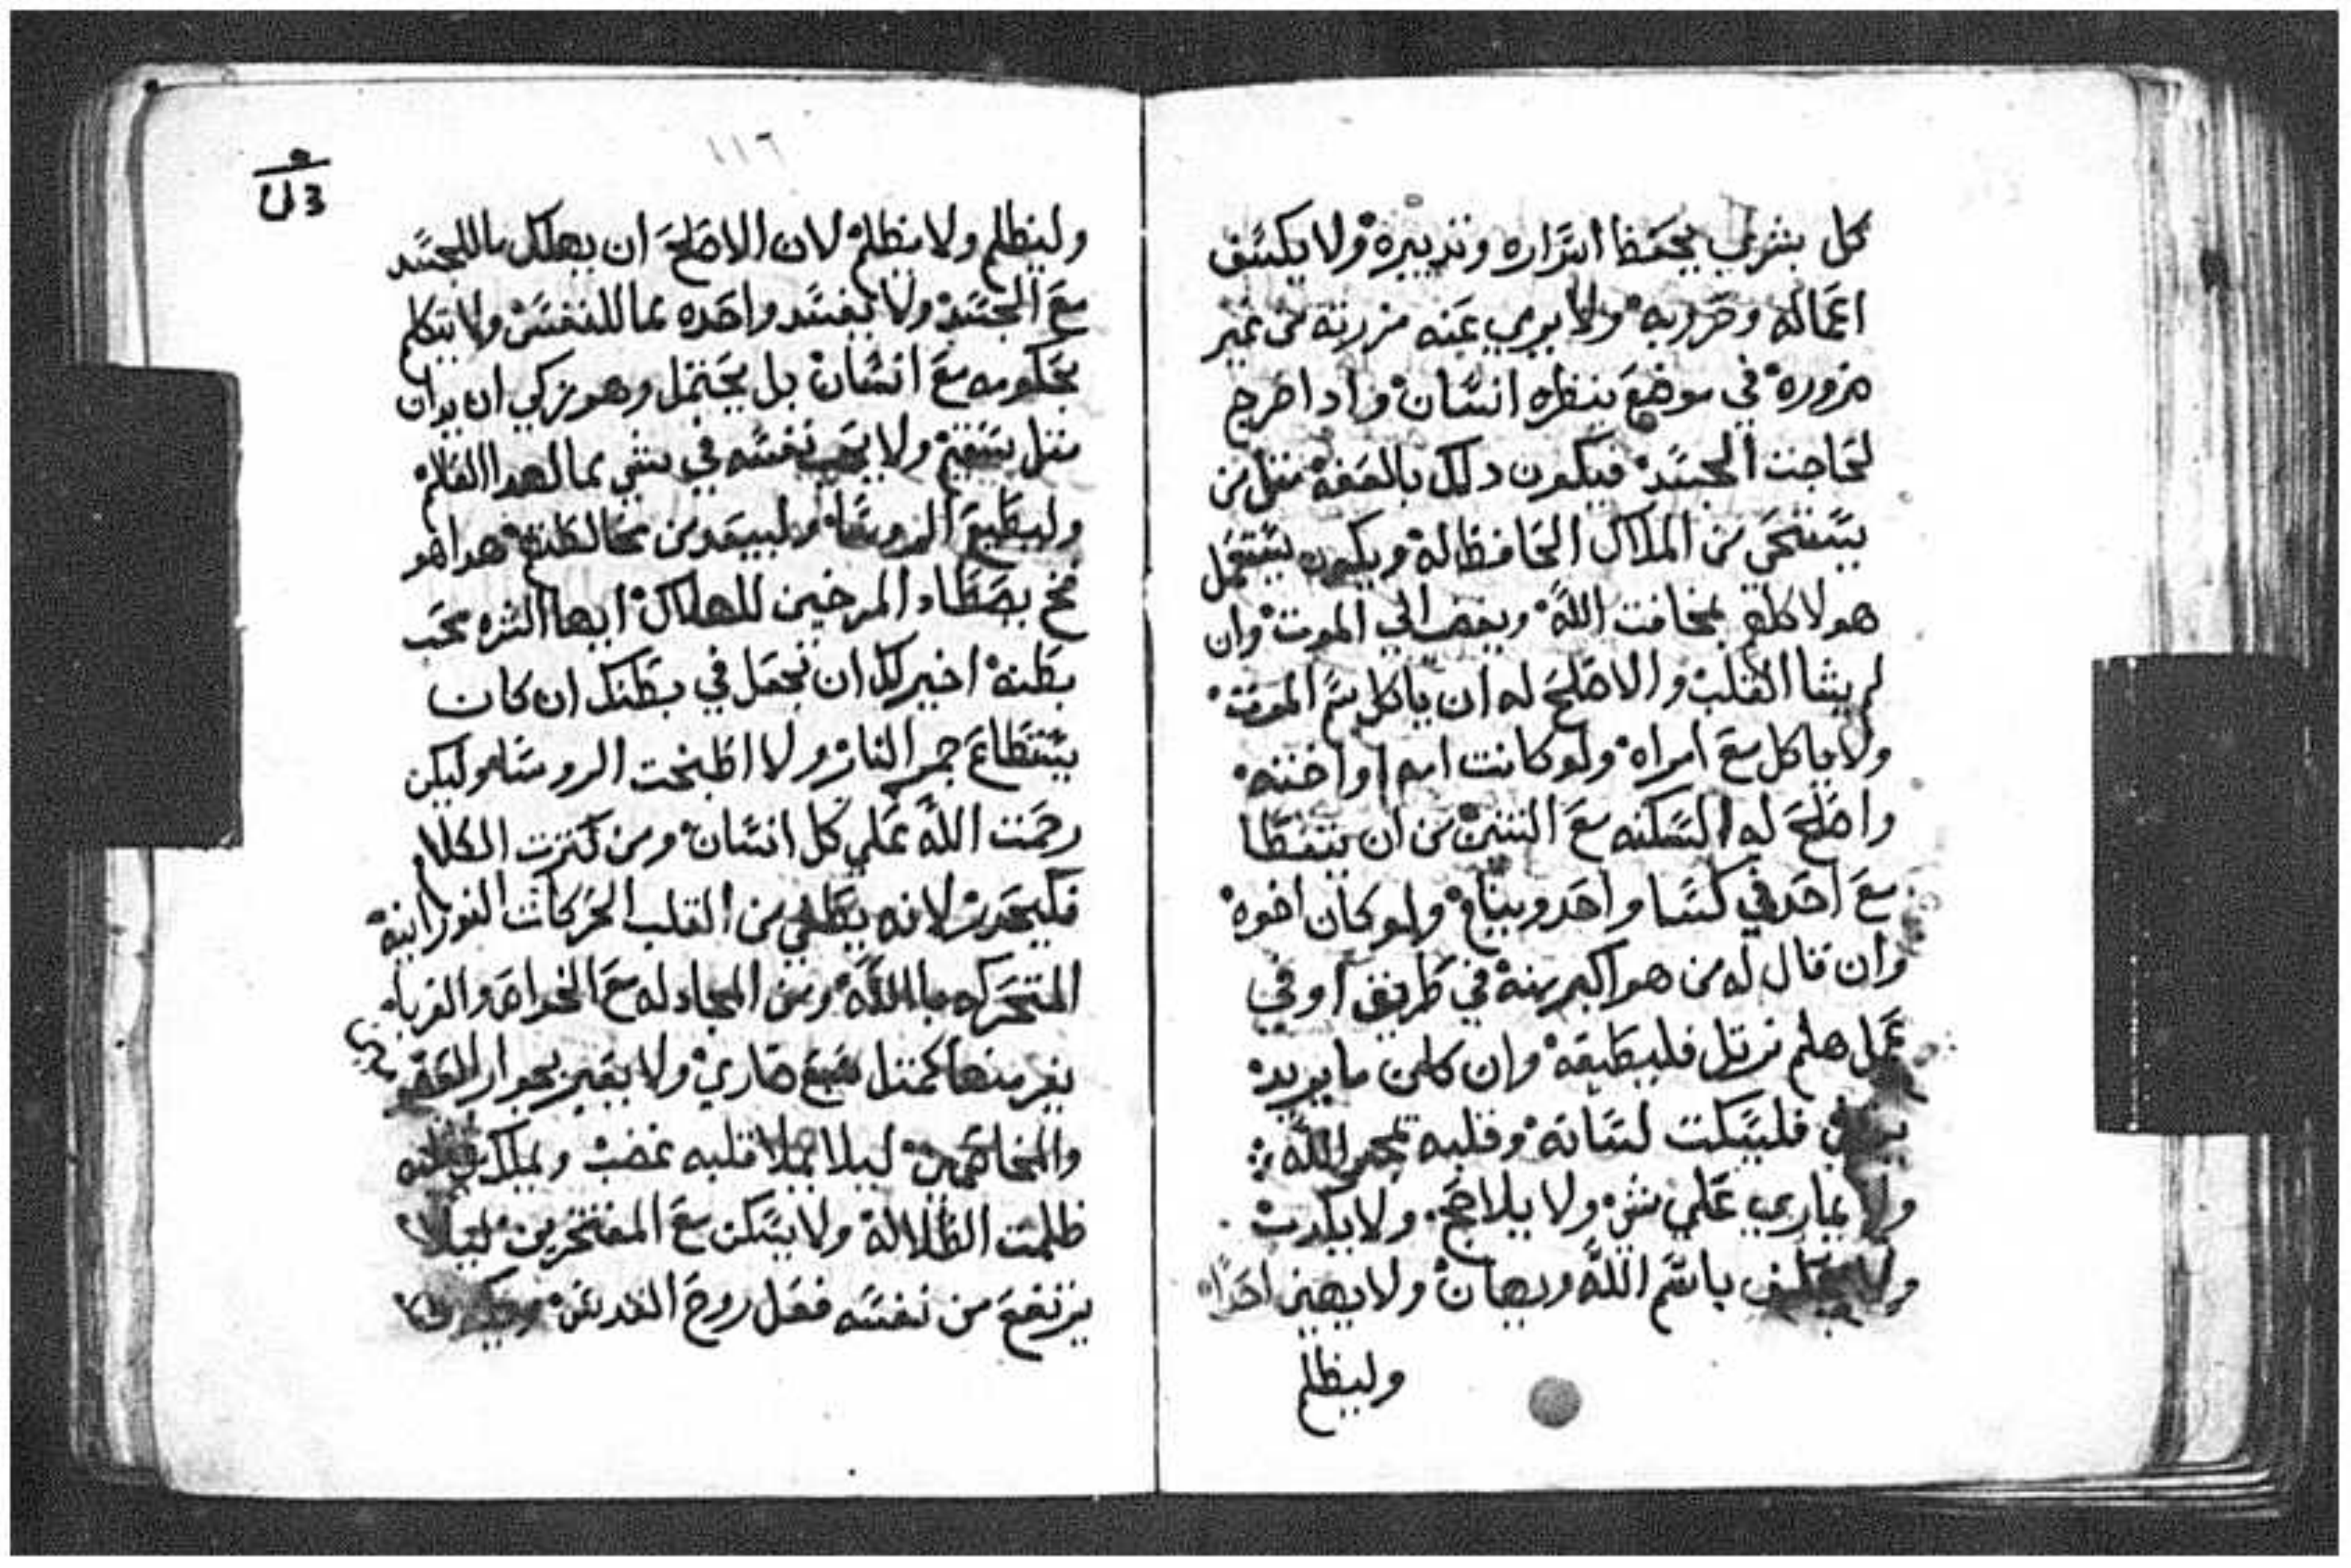 كل بشري يحفظ اسراره وتدبيره ولا يكشف
اعماله وحروبه ولا يرمي عنه مزرته من غير
ضروره في موضع ينظره انسان واذا خرج
لحاجت الجسد فيكون دلك بالعفه مثل من
يستحي من الملاك الحافظ له ويكون يستعمل
هولا كلهم بمخافت الله ويغصب الي الموت وان
لم يشا القلب والاصلح له ان ياكل سم الموت
ولا ياكل مع امراه ولو كانت امه او اخته
واصلح له السكنه مع التنين من ان يتغطا
مع احد في كسا واحد وينام ولو كان اخوه
وان قال له من هو اكبر منه في طريق او في
عمل هلم نرتل فليطيعه وان كان ما يريد
فليسكت لسانه وقلبه يمجد الله
ولا يماري علي شي ولا يلاجج ولا يكدب
ولا يحلف باسم الله ويهان ولا يهين احدا
وليظلم
١١٦
وليظلم ولا يظلم لان الاصلح ان يهلك ما للجسد
مع الجسد ولا يفسد واحده مما للنفس ولا يتكلم
بحكومه مع انسان بل يحتمل وهو زكي ان يدان
مثل سقيم ولا يحب نفسه في شي مما لهدا العالم
وليطيع الروسا وليبعد من مخالطتهم هدا هو
فخ يصطاد المرخين للهلاك ايها الشره محب
بطنه اخير لك ان تجعل في بطنك ان كان
يستطاع جمر النار ولا اطبخت الروسا وليكن
رحمت الله علي كل انسان ومن كترت الكلام
فليحدر لانه يطفي من القلب الحركات النورانيه
المتحركه بالله ومن المجادله مع الخواص والغربا
يفر منها كمثل سبع ضاري ولا يعبر بجوار
والمخاصمين ليلا يمتلا قلبه غضب ويملك
ظلمت الظلاله ولا يسكن مع المفتخرين ليلا
يرتفع من نفسه فعل روح القدس